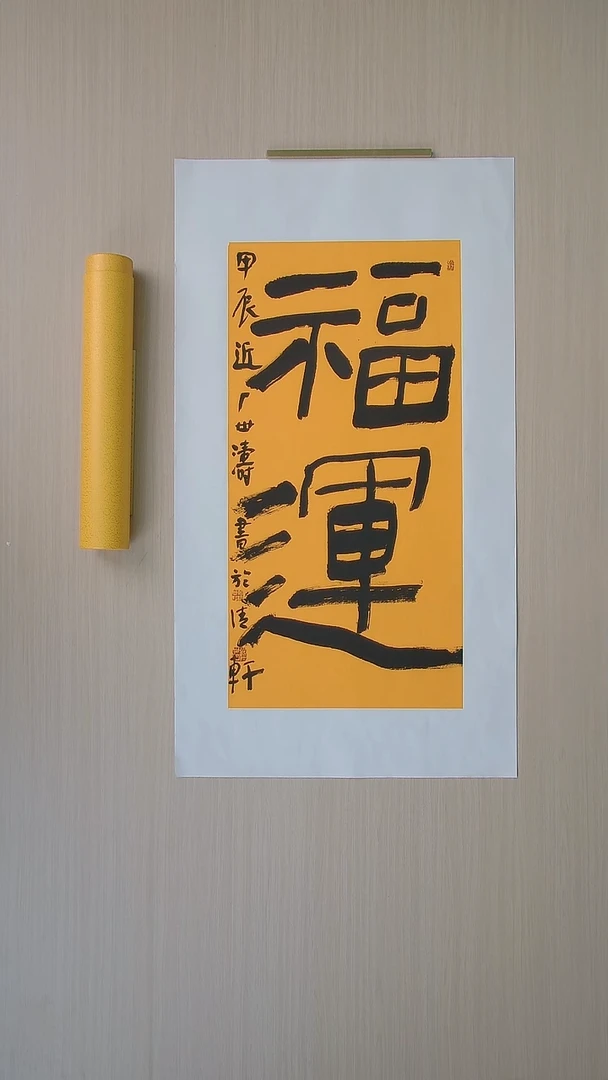 福運
甲辰近廠世濤書於清軒